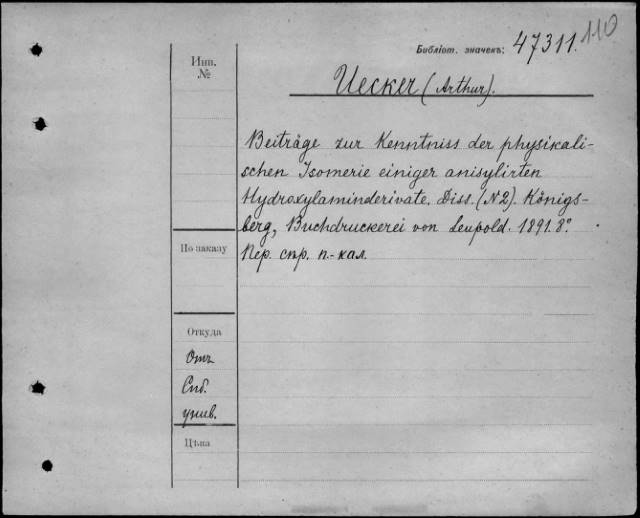 Библіот. значекъ: 47311. 110
Инв. №
Uecker (Arthur).
Beiträge zur Kenntniss der physikali-
schen Isomerie einiger anisylirten
Hydroxylaminderivate. Diss. (N 2). Königs-
berg, Buchdruckerei von Leupold. 1891. 8º.
По заказу
Пер. спр. п.-кал.
Откуда
Отъ
Спб.
унив.
Цѣна